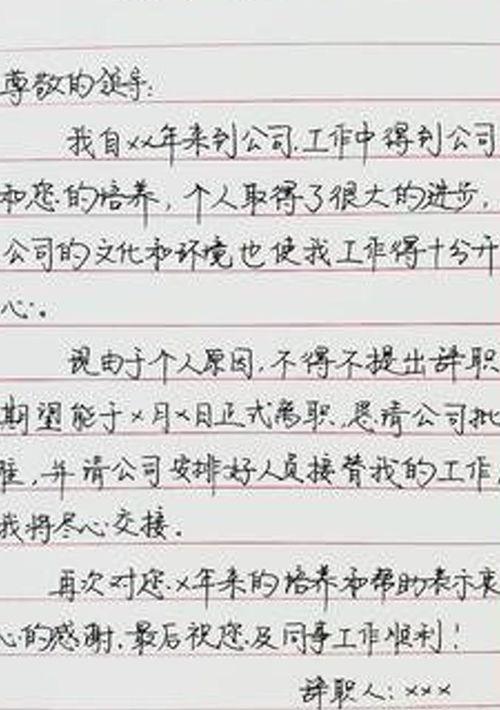 尊敬的领导:
我自xx年来到公司,工作中得到公司
和您的培养,个人取得了很大的进步,
公司的文化和环境也使我工作得十分开
心。
现由于个人原因,不得不提出辞职
期望能于x月x日正式离职,恳请公司批
准,并请公司安排好人员接替我的工作,
我将尽心交接。
再次对您x年来的培养和帮助表示衷
心的感谢.最后祝您及同事工作顺利!
辞职人:xxx